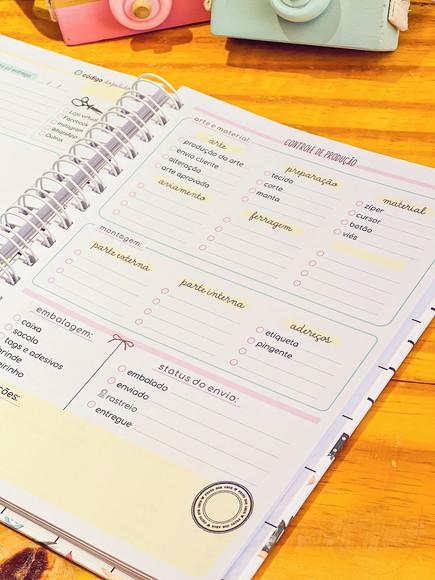 código
Loja virtual
Facebook
Instagram
WhatsApp
Outros
CONTROLE DE PRODUÇÃO
arte e material:
arte
produção da arte
envio cliente
alteração
arte aprovada
aviamento
preparação
tecido
corte
manta
ferragem
material
zíper
cursor
botão
viés
montagem:
parte externa
parte interna
adereços
etiqueta
pingente
embalagem:
caixa
sacola
tags e adesivos
status do envio:
embalado
enviado
rastreio
entregue